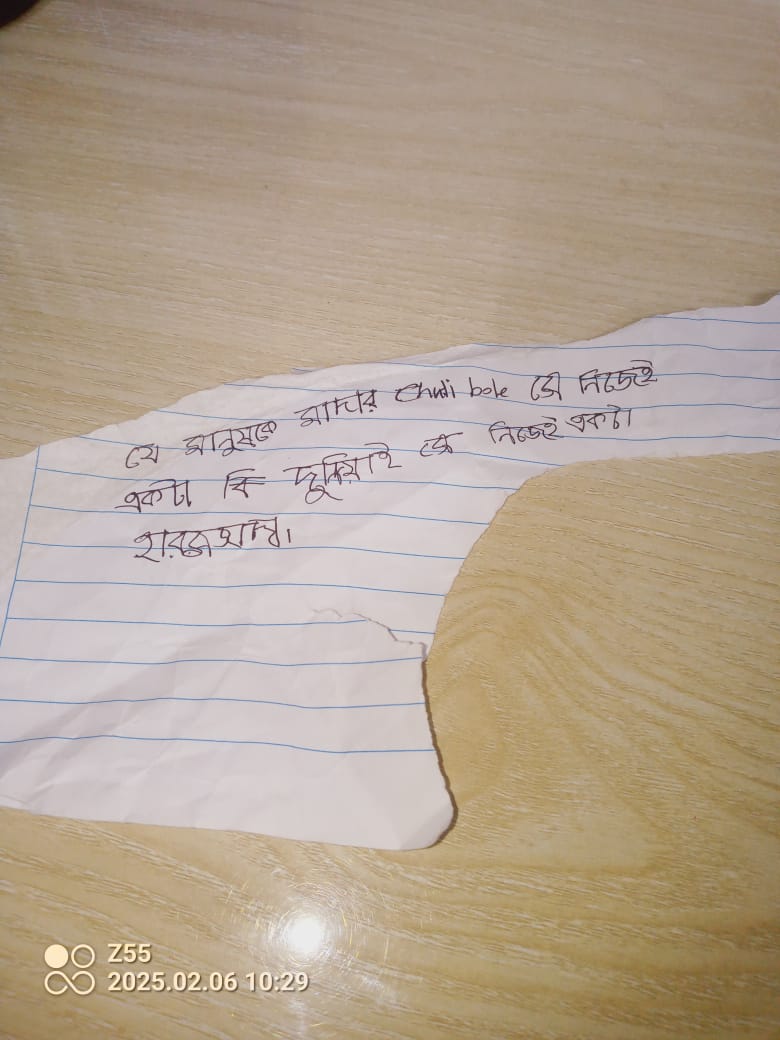 যে মানুষকে মাদার chudi bole সে নিজেই
একটা কি দুনিয়াই সে নিজেই একটা
Z55
2025.02.06 10:29